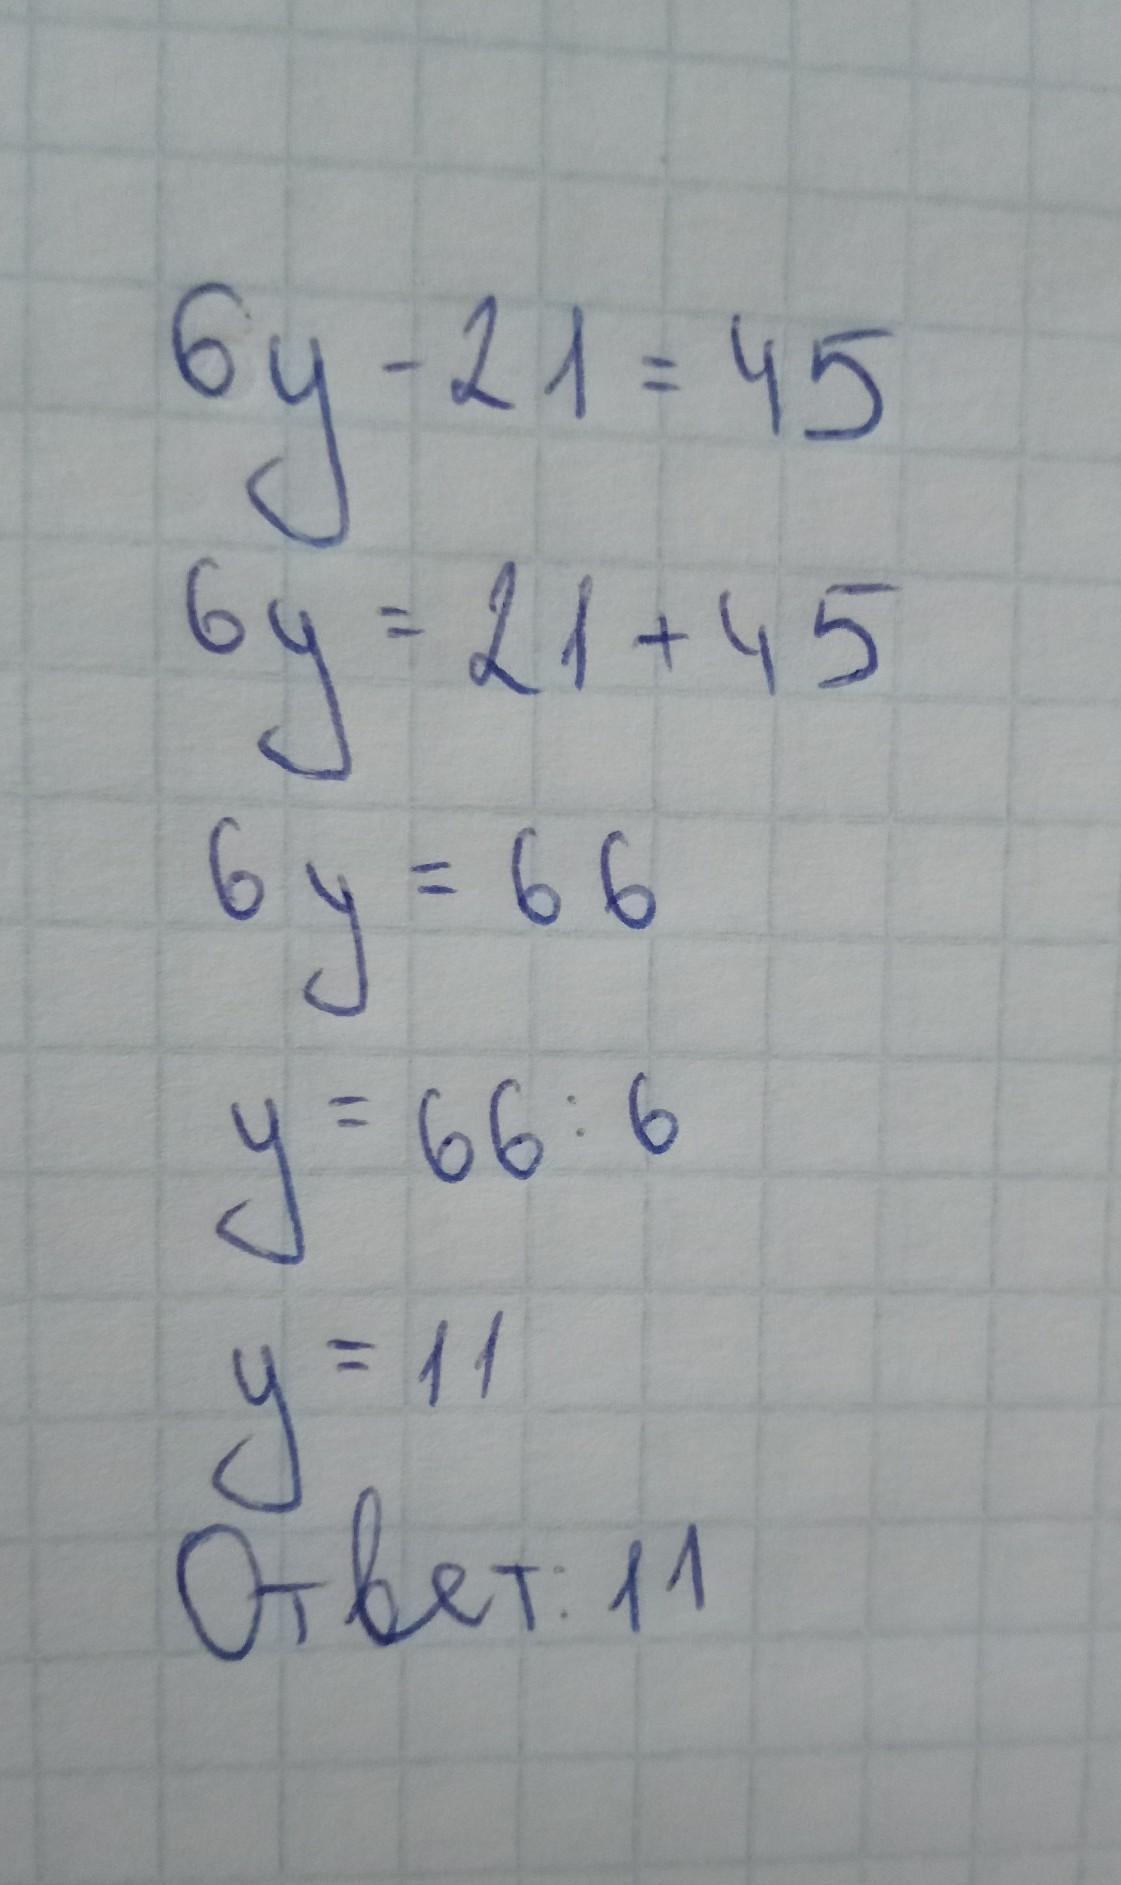 6y - 21 = 45
6y = 21 + 45
6y = 66
y = 66 : 6
y = 11
Ответ: 11